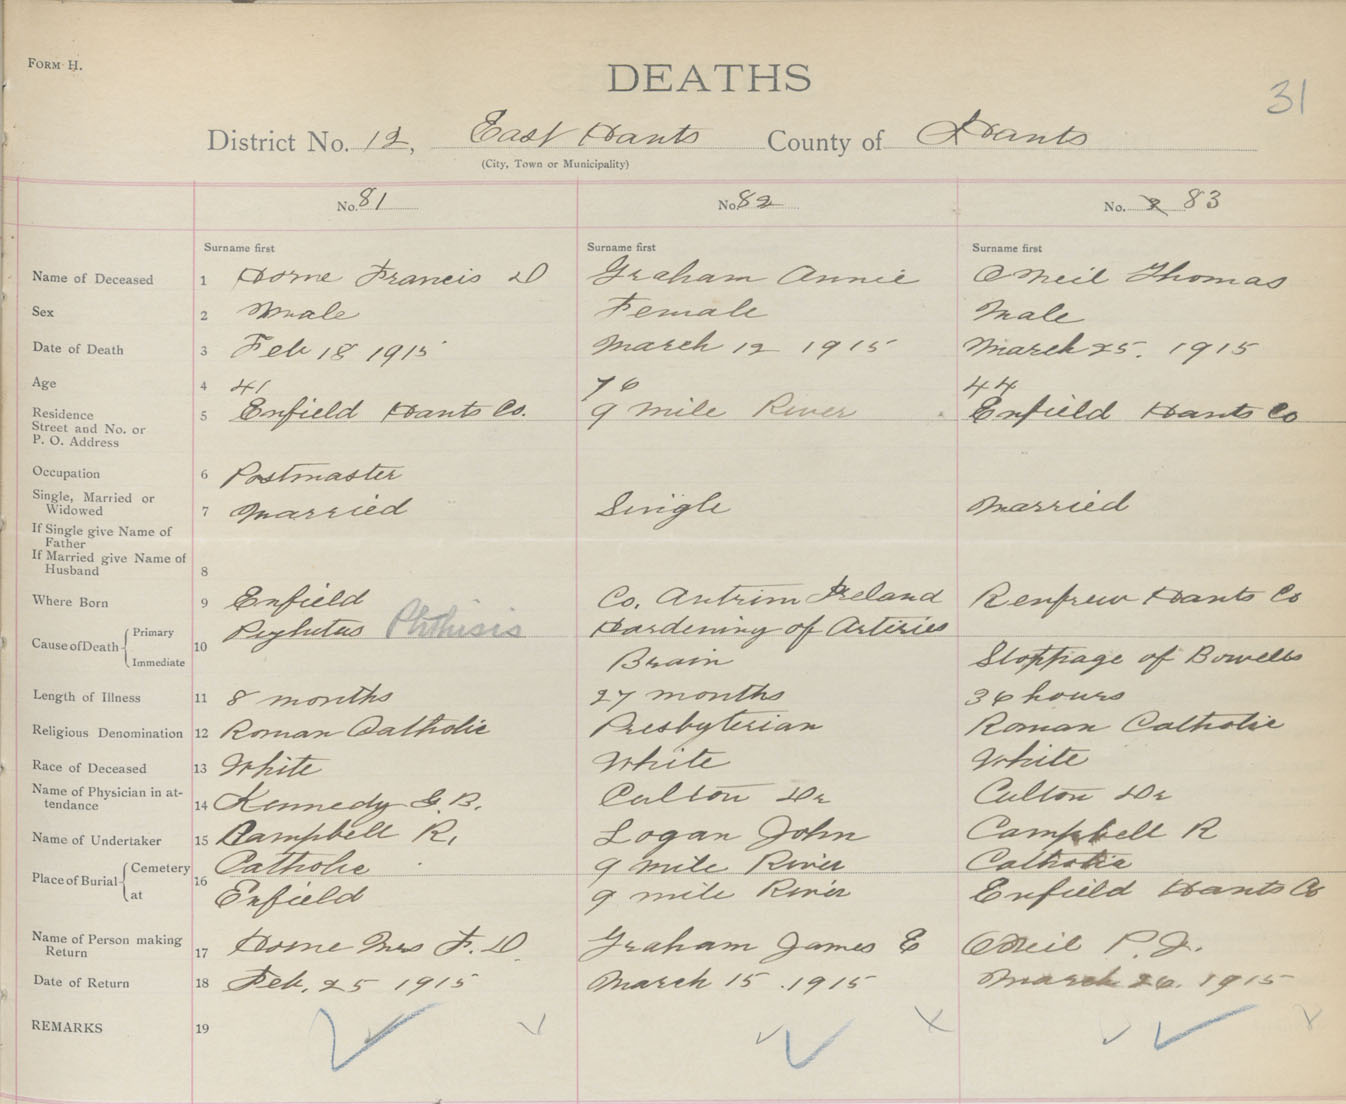 FORM H.
DEATHS
31
District No. 12, East Hants County of Hants
(City, Town or Municipality)
No. 81 No. 82 No. 83
Surname first Surname first Surname first
Name of Deceased 1 Horne Francis D Graham Annie ONeil Thomas
Sex 2 Male Female Male
Date of Death 3 Feb 18 1915 March 12 1915 March 25. 1915
Age 4 41 76 44
Residence 5 Enfield Hants Co. 9 mile River Enfield Hants Co
Street and No. or
P. O. Address
Occupation 6 Postmaster
Single, Married or
Widowed 7 Married Single Married
If Single give Name of
Father
If Married give Name of
Husband 8
Where Born 9 Enfield Co. Antrim Ireland Renfrew Hants Co
Cause of Death Primary 10 Phthisis Hardening of Arteries
Immediate Brain Stoppage of Bowells
Length of Illness 11 8 months 27 months 36 hours
Religious Denomination 12 Roman Catholic Presbyterian Roman Catholic
Race of Deceased 13 White White White
Name of Physician in at-
tendance 14 Kennedy G. B. Culton Dr Culton Dr
Name of Undertaker 15 Campbell R. Logan John Campbell R
Place of Burial Cemetery 16 Catholic 9 mile River Catholic
at Enfield 9 mile River Enfield Hants Co
Name of Person making
Return 17 Horne Mrs F. D. Graham James E ONeil P. J.
Date of Return 18 Feb. 25 1915 March 15 . 1915 March 26. 1915
REMARKS 19